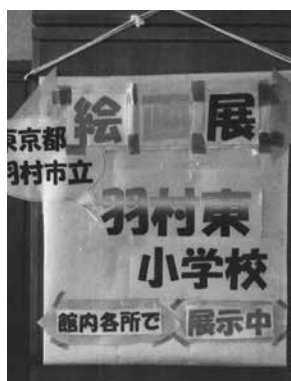 絵画展
東京都
羽村市立
羽村東
小学校
館内各所で
展示中